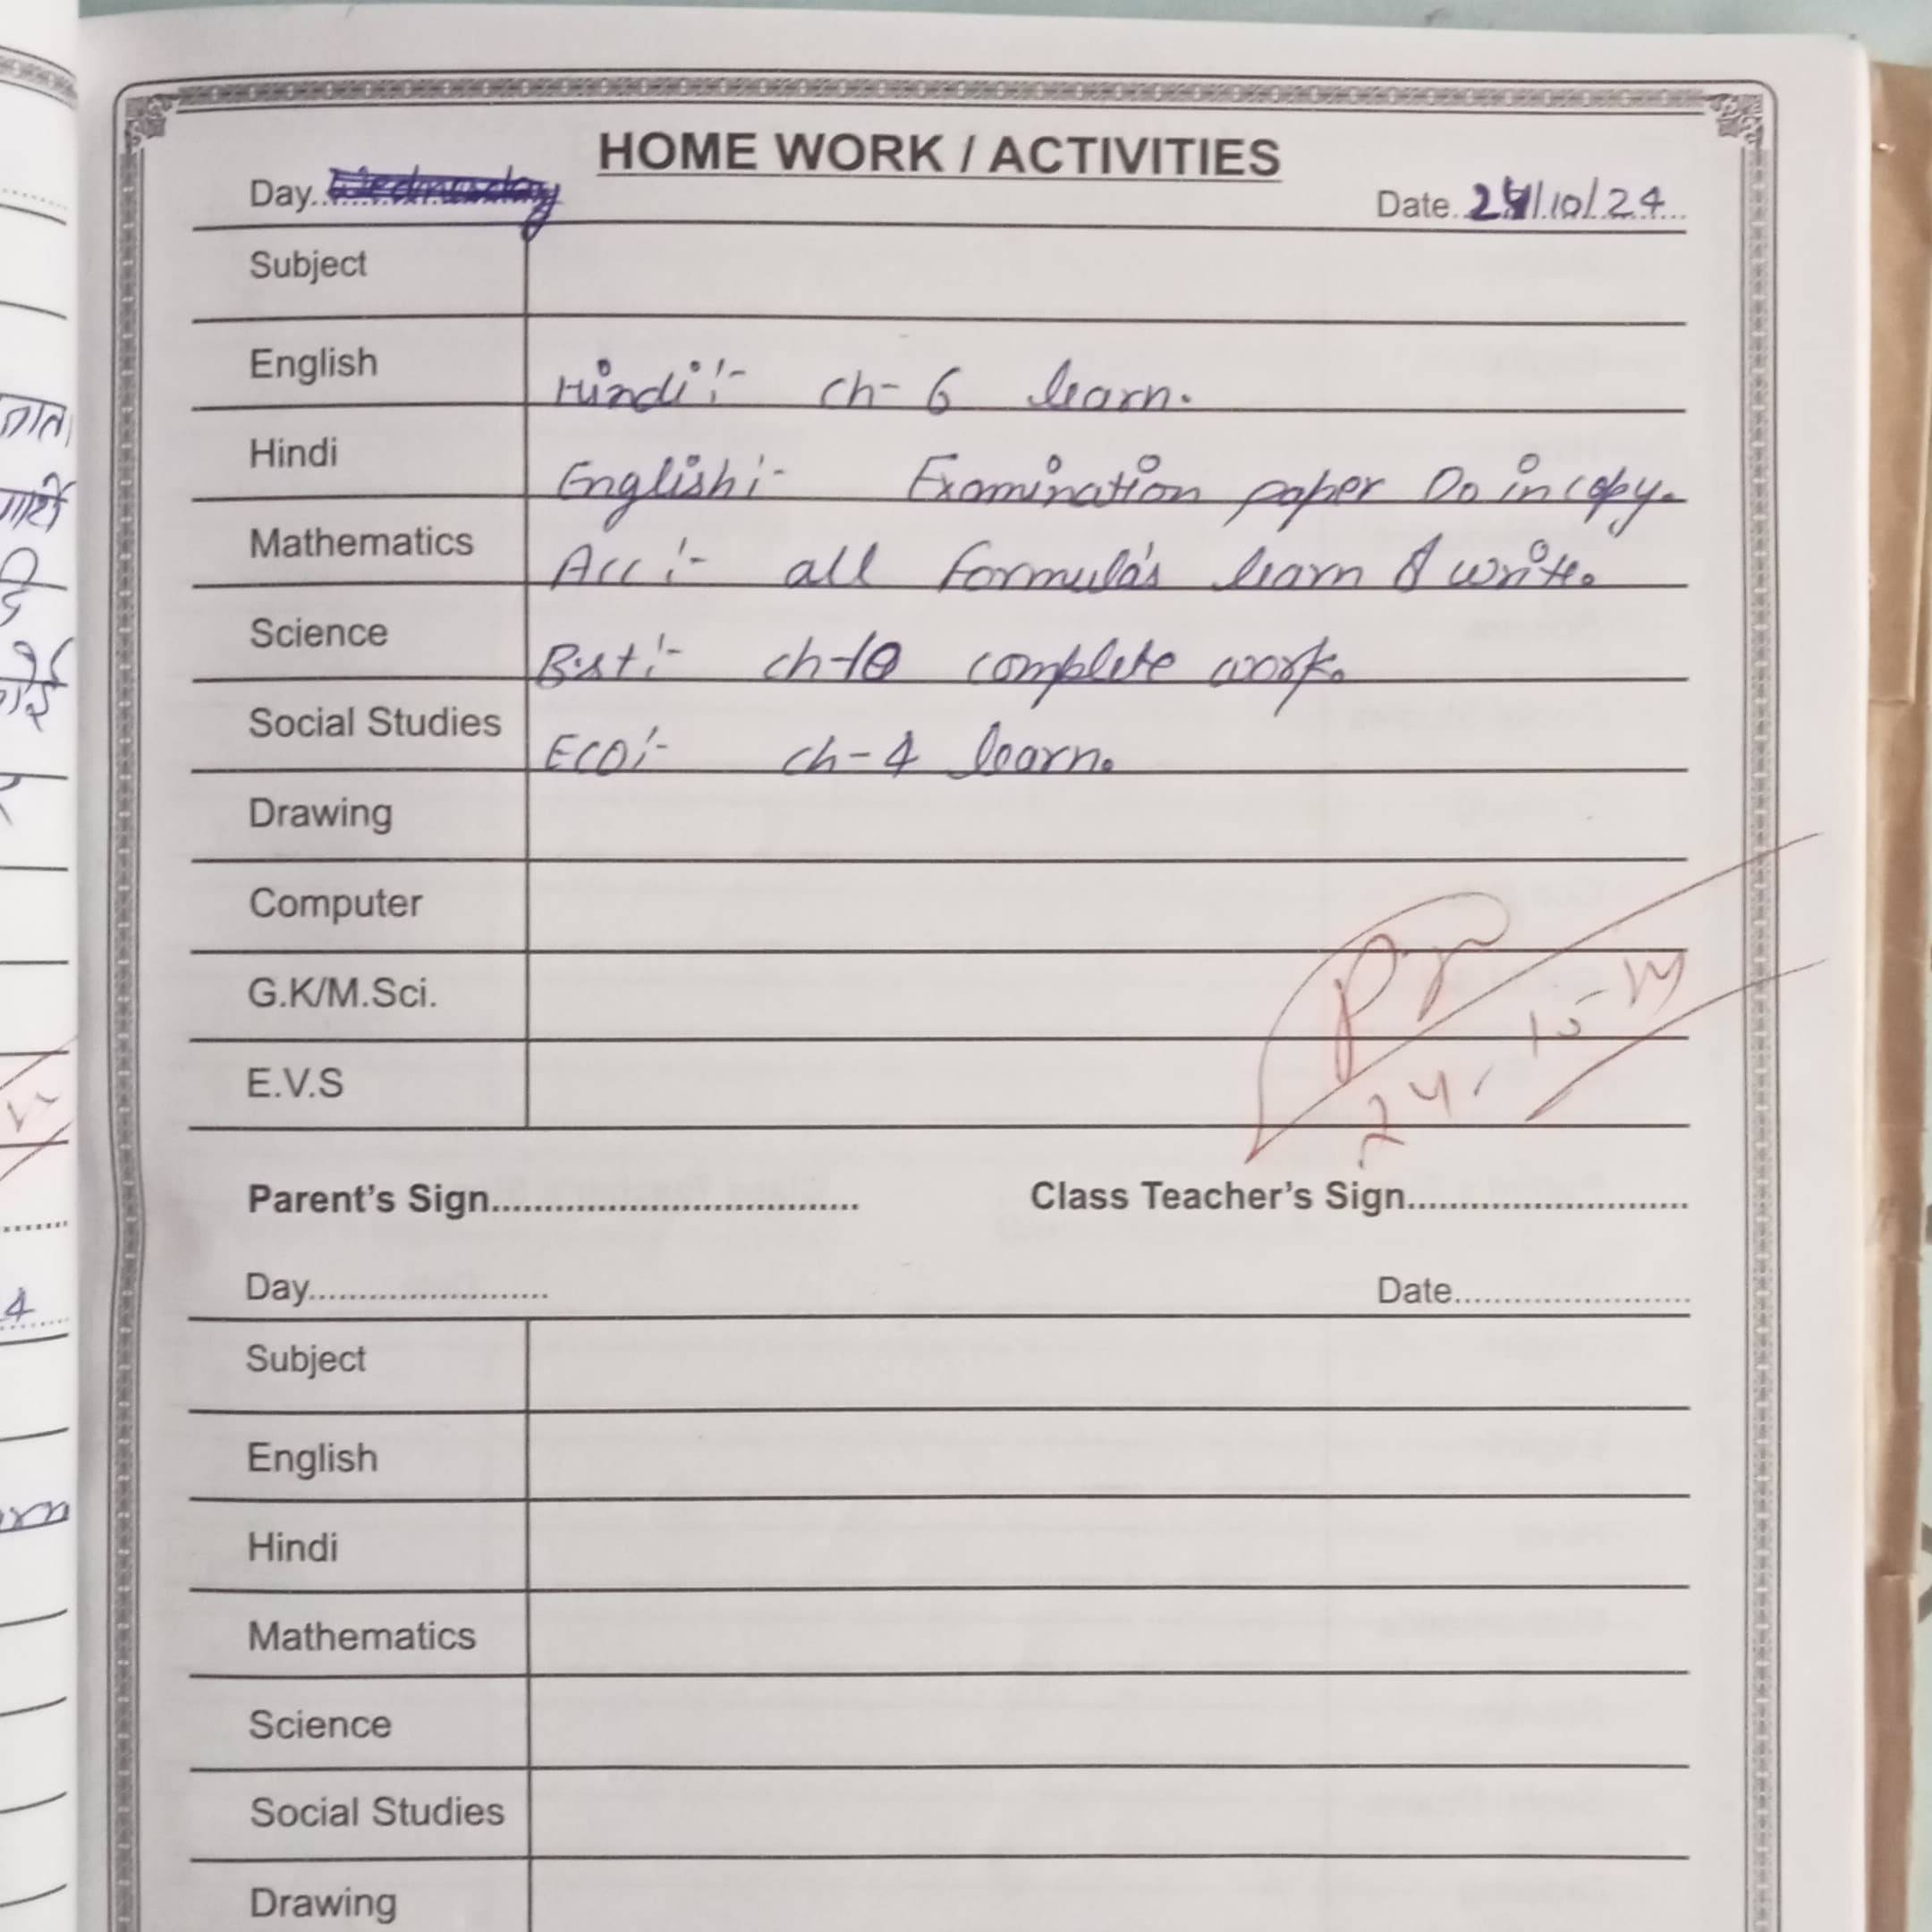 HOME WORK / ACTIVITIES
Day..Wednesday
Date.24/10/24
Subject
English Hindi :- ch- 6 learn.
Hindi English :- Examination paper Do in copy.
Mathematics Acc :- all formula's learn & write.
Science Bst :- ch-10 complete work.
Social Studies Eco :- ch-4 learn.
Drawing
Computer
G.K/M.Sci.
E.V.S
24.10-24
Parent's Sign.................................. Class Teacher's Sign..........................
Day...................... Date......................
Subject
English
Hindi
Mathematics
Science
Social Studies
Drawing